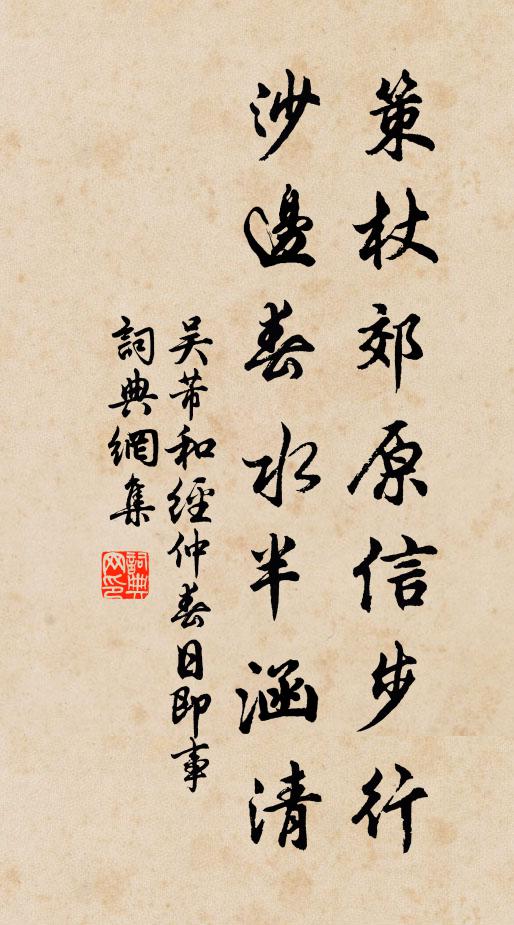 策杖郊原信步行
沙邊春水半涵清
吴芾和經仲春日即事
詞典網集
詞典網印